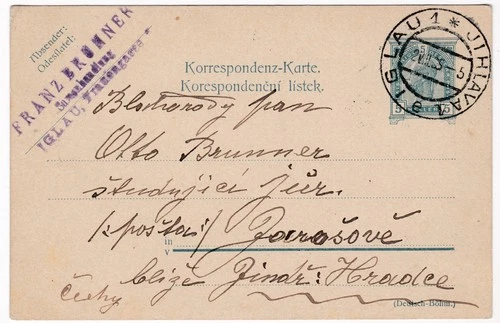 Absender:
Odesílatel:
FRANZ BRUNNER
IGLAU, Frauengasse
Korrespondenz-Karte.
Korespondenční lístek.
IGLAU 1 * JIHLAVA 1
5
5
e
Blahorodý pan
Otto Brunner
študující jur.
(: pošta :) Jarošově
in
v
blíže Jindř: Hradce
Čechy
(Deutsch-Böhm.)